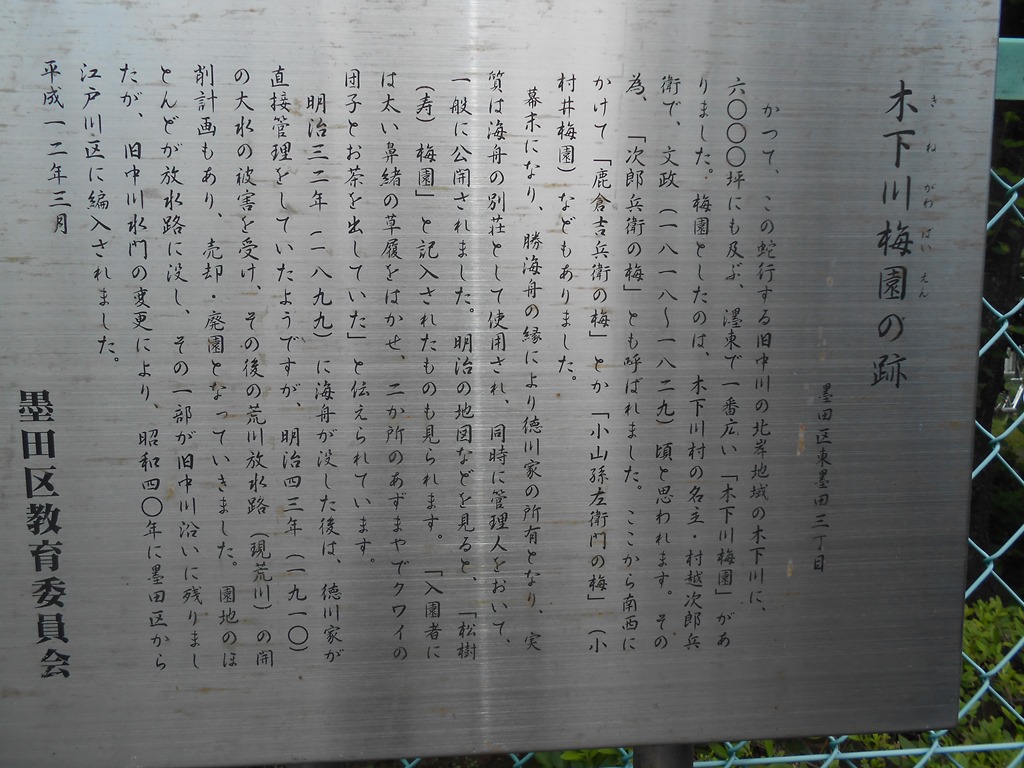 木下川梅園の跡
きねがわばいえん
墨田区東墨田三丁目
かつて、この蛇行する旧中川の北岸地域の木下川に、
六〇〇〇坪にも及ぶ、濹東で一番広い「木下川梅園」があ
りました。梅園としたのは、木下川村の名主・村越次郎兵
衛で、文政(一八一八〜一八二九)頃と思われます。その
為、「次郎兵衛の梅」とも呼ばれました。ここから南西に
かけて「鹿倉吉兵衛の梅」とか「小山孫左衛門の梅」(小
村井梅園)などもありました。
幕末になり、勝海舟の縁により徳川家の所有となり、実
質は海舟の別荘として使用され、同時に管理人をおいて、
一般に公開されました。明治の地図などを見ると、「松樹
(寿)梅園」と記入されたものも見られます。「入園者に
は太い鼻緒の草履をはかせ、二か所のあずまやでクワイの
団子とお茶を出していた」と伝えられています。
明治三二年(一八九九)に海舟が没した後は、徳川家が
直接管理をしていたようですが、明治四三年(一九一〇)
の大水の被害を受け、その後の荒川放水路(現荒川)の開
削計画もあり、売却・廃園となっていきました。園地のほ
とんどが放水路に没し、その一部が旧中川沿いに残りまし
たが、旧中川水門の変更により、昭和四〇年に墨田区から
江戸川区に編入されました。
平成一二年三月
墨田区教育委員会